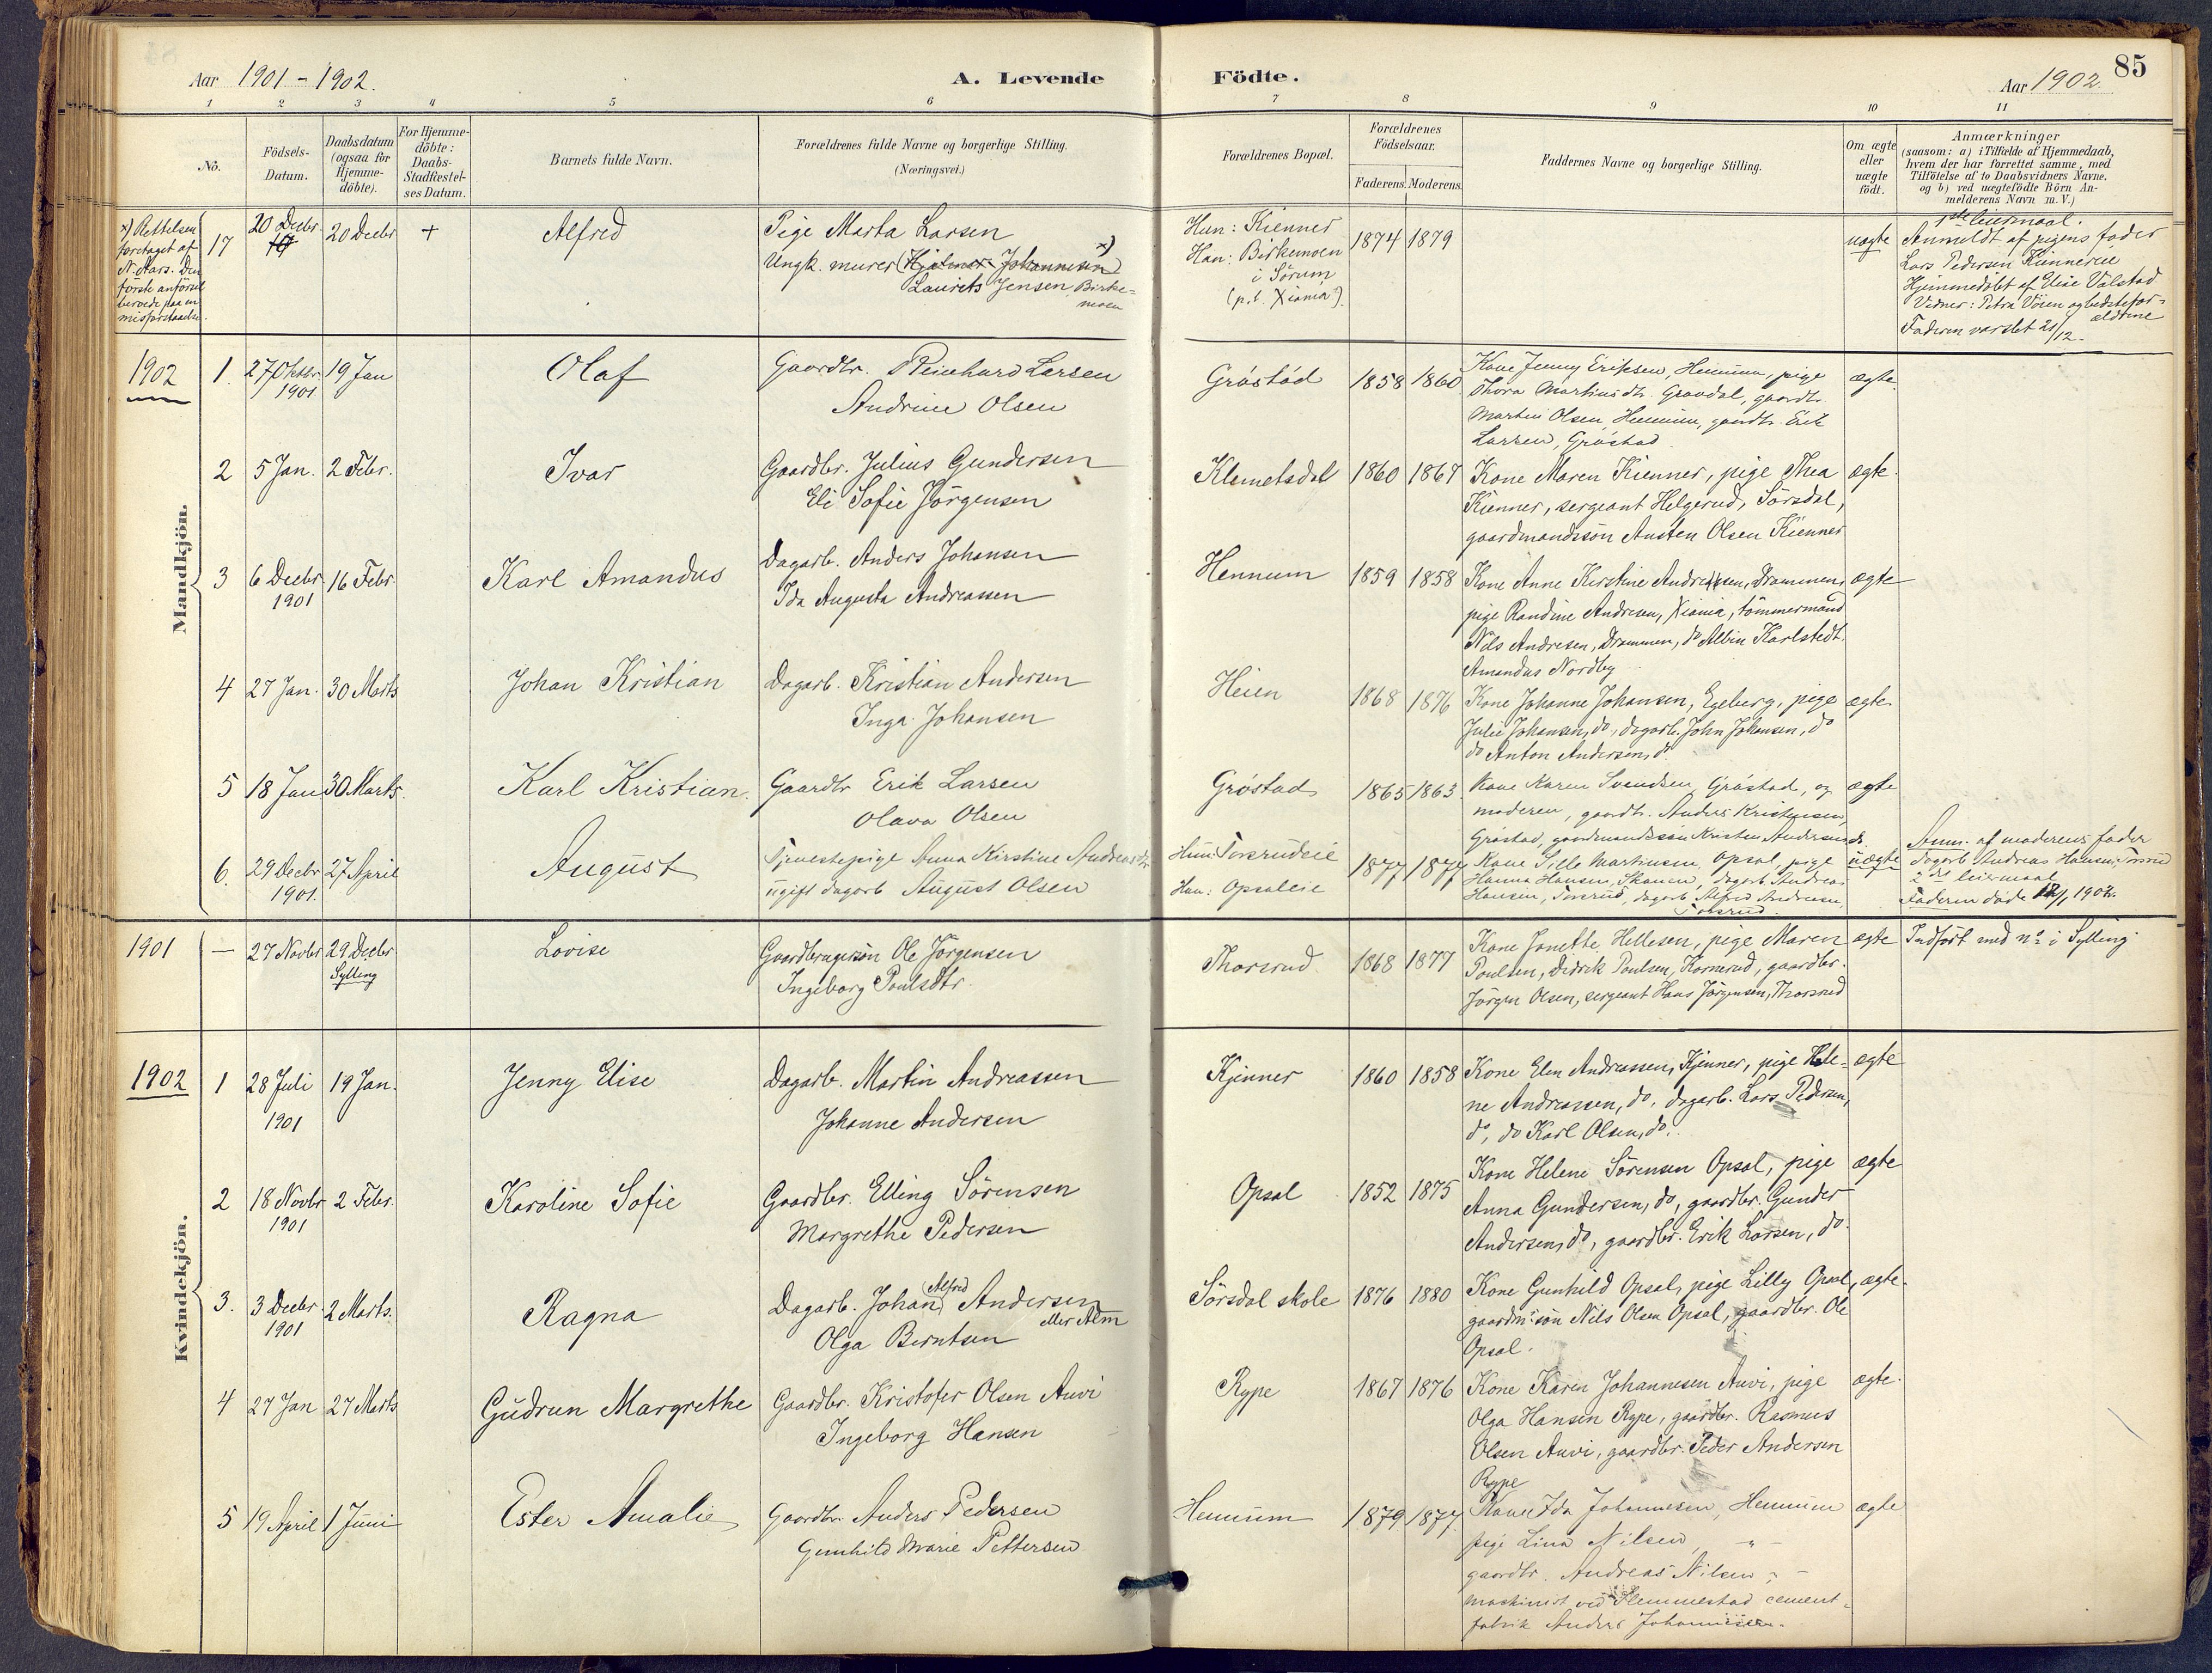 Aar 1901 - 1902.
A. Levende
Födte.
Aar 1902
85
1 2 3 4 5 6 7 8 9 10 11
No.
Födsels-
Datum.
Daabsdatum
(ogsaa for
Hjemme-
döbte).
For Hjemme-
döbte:
Daabs-
Stadfæstel-
ses Datum.
Barnets fulde Navn.
Forældrenes fulde Navne og borgerlige Stilling.
(Næringsvei.)
Forældrenes Bopæl.
Forældrenes
Födselsaar.
Faderens. Moderens.
Faddernes Navne og borgerlige Stilling.
Om ægte
eller
uægte
födt.
Anmærkninger
(saasom: a) i Tilfælde af Hjemmedaab,
hvem der har forrettet samme, med
Tilföielse af to Daabsvidners Navne,
og b) ved uægtefödte Börn An-
melderens Navn m. V.)
x) Rettelsen
foretaget af
N. Aars. Den
første anførsel
beroede paa en
misforstaaelse.
17
20 Decbr.
20 Decbr
+
Alfred
Pige Marta Larsen
Ungk. murer (Hjalmar Johannesen) x)
Laurits Jensen Birke=
mosen
Hun: Kienner
Han: Birkemoen
i Sørum
(p.t. Xiania).
1874 1879
uægte
1ste leiermaal.
Anmeldt af pigens fader
Lars Pedersen Kiennereie
Hjemmedøbt af Elise Valstad
Vidner: Petra Vöien og bedstefor-
ældrene
Faderen varslet 21/12.
Mandkjön.
1902
1. 27 Oktbr. 19 Jan
1901
Olaf
Gaardbr. Reinhard Larsen
Andrine Olsen
Gröstad
1858 1860
Kone Jenny Eriksen, Hennum, pige
Thora Martinsdtr. Graadal, gaardbr.
Martin Olsen, Hennum, gaardbr. Erik
Larsen, Gröstad.
ægte.
2 5 Jan. 2 Febr.
Ivar
Gaardbr. Julius Gundersen
Eli Sofie Jörgensen
Klemetsdal
1860 1867
Kone Maren Kienner, pige Thea
Kienner, sergeant Helgerud, Sørsdal,
gaardmandssön Austen Olsen Kienner
ægte.
3 6 Decbr 16 Febr.
1901
Karl Amandus
Dagarb. Anders Johansen
Ida Augusta Andreassen
Hennum
1859 1858
Kone Anne Kirstine Andresen, Drammen,
pige Randine Andresen, Xiania, tömmermand
Nils Andresen, Drammen, do Albin Karlstedt.
Amandus Nordby
ægte
4 27 Jan. 30 Marts
Johan Kristian
Dagarb. Kristian Andersen
Inga Johansen
Heien
1868 1876
Kone Johanne Johansen, Egeberg, pige
Julie Johansen, do, dagarb. John Johansen, do
do Anton Andersen, do.
ægte
5 18 Jan 30 Marts.
Karl Kristian.
Gaardbr Erik Larsen
Olava Olsen
Gröstad
1865 1863.
Kone Karen Svendsen, Gröstad, og
moderen, gaardbr. Anders Kristensen,
Gröstad, gaardmandssön Kristen Andersen do
ægte
6. 29 Decbr 27 April
1901.
August
Tjenestepige Anna Kirstine Andreasdtr
ugift dagarb August Olsen
Hun: Torsrudeie
Han: Opsaleie
1877 1877
Kone Sille Martinsen, Opsal, pige
Hanna Hansen, Skauen, dagarb. Andreas
Hansen, Torsrud, dagarb Alfred Andresen,
Torsrud.
uægte
Anm. af moderens fader
dagarb Andreas Hansen, Torsrud
2det leiermaal
Faderen döde 12/1 1902.
1901
— 27 Novbr 29 Decbr
Sylling
Lovise
Gaardbrugersön Ole Jörgensen
Ingeborg Poulsdtr.
Thorsrud
1868 1877
Kone Jonette Hellesen, pige Maren
Poulsen, Didrik Poulsen, Kornerud, gaardbr.
Jörgen Olsen, sergeant Hans Jörgensen, Thorsrud
ægte
Indfört med no i Sylling
Kvindekjön.
1902
1 28 Juli 19 Jan.
1901
Jenny Elise
Dagarb. Martin Andreassen
Johanne Andersen
Kjinner
1860 1858
Kone Elen Andreassen, Kjinner, pige Hele-
ne Andreassen, do, dagarb. Lars Pedersen,
do, do Karl Olsen, do.
ægte
2 18 Novbr 2 Febr.
1901
Karoline Sofie
Gaardbr. Elling Sörensen
Margrethe Pedersen
Opsal
1852 1875
Kone Helene Sörensen Opsal, pige
Anna Gundersen, do, gaardbr. Gunder
Andersen, do, gaardbr. Erik Larsen, do.
ægte
3. 3 Decbr 2 Marts.
1901
Ragna
Dagarb. Johan (Alfred) Andersen
eller Alm
Olga Berntsen
Sörsdal skole
1876 1880
Kone Gunhild Opsal, pige Lilly Opsal,
gaardm.sön Nils Olsen Opsal, gaardbr. Ole
Opsal.
ægte.
4 27 Jan 27 Marts
Gudrun Margrethe
Gaardbr. Kristofer Olsen Auvi
Ingeborg Hansen
Rype
1867 1876
Kone Karen Johannesen Auvi, pige
Olga Hansen Rype, gaardbr. Rasmus
Olsen Auvi, gaardbr. Peder Andersen
Rype
ægte.
5 19 April 1 Juni
Ester Amalie
Gaardbr. Anders Pedersen
Gunhild Marie Pettersen
Hennum
1879 1877.
Kone Ida Johannesen, Hennum
pige Lina Nilsen, - " -
gaardbr. Andreas Nilsen - " -
maskinist ved Slemmestad cement-
fabrik Anders Johannesen.
ægte